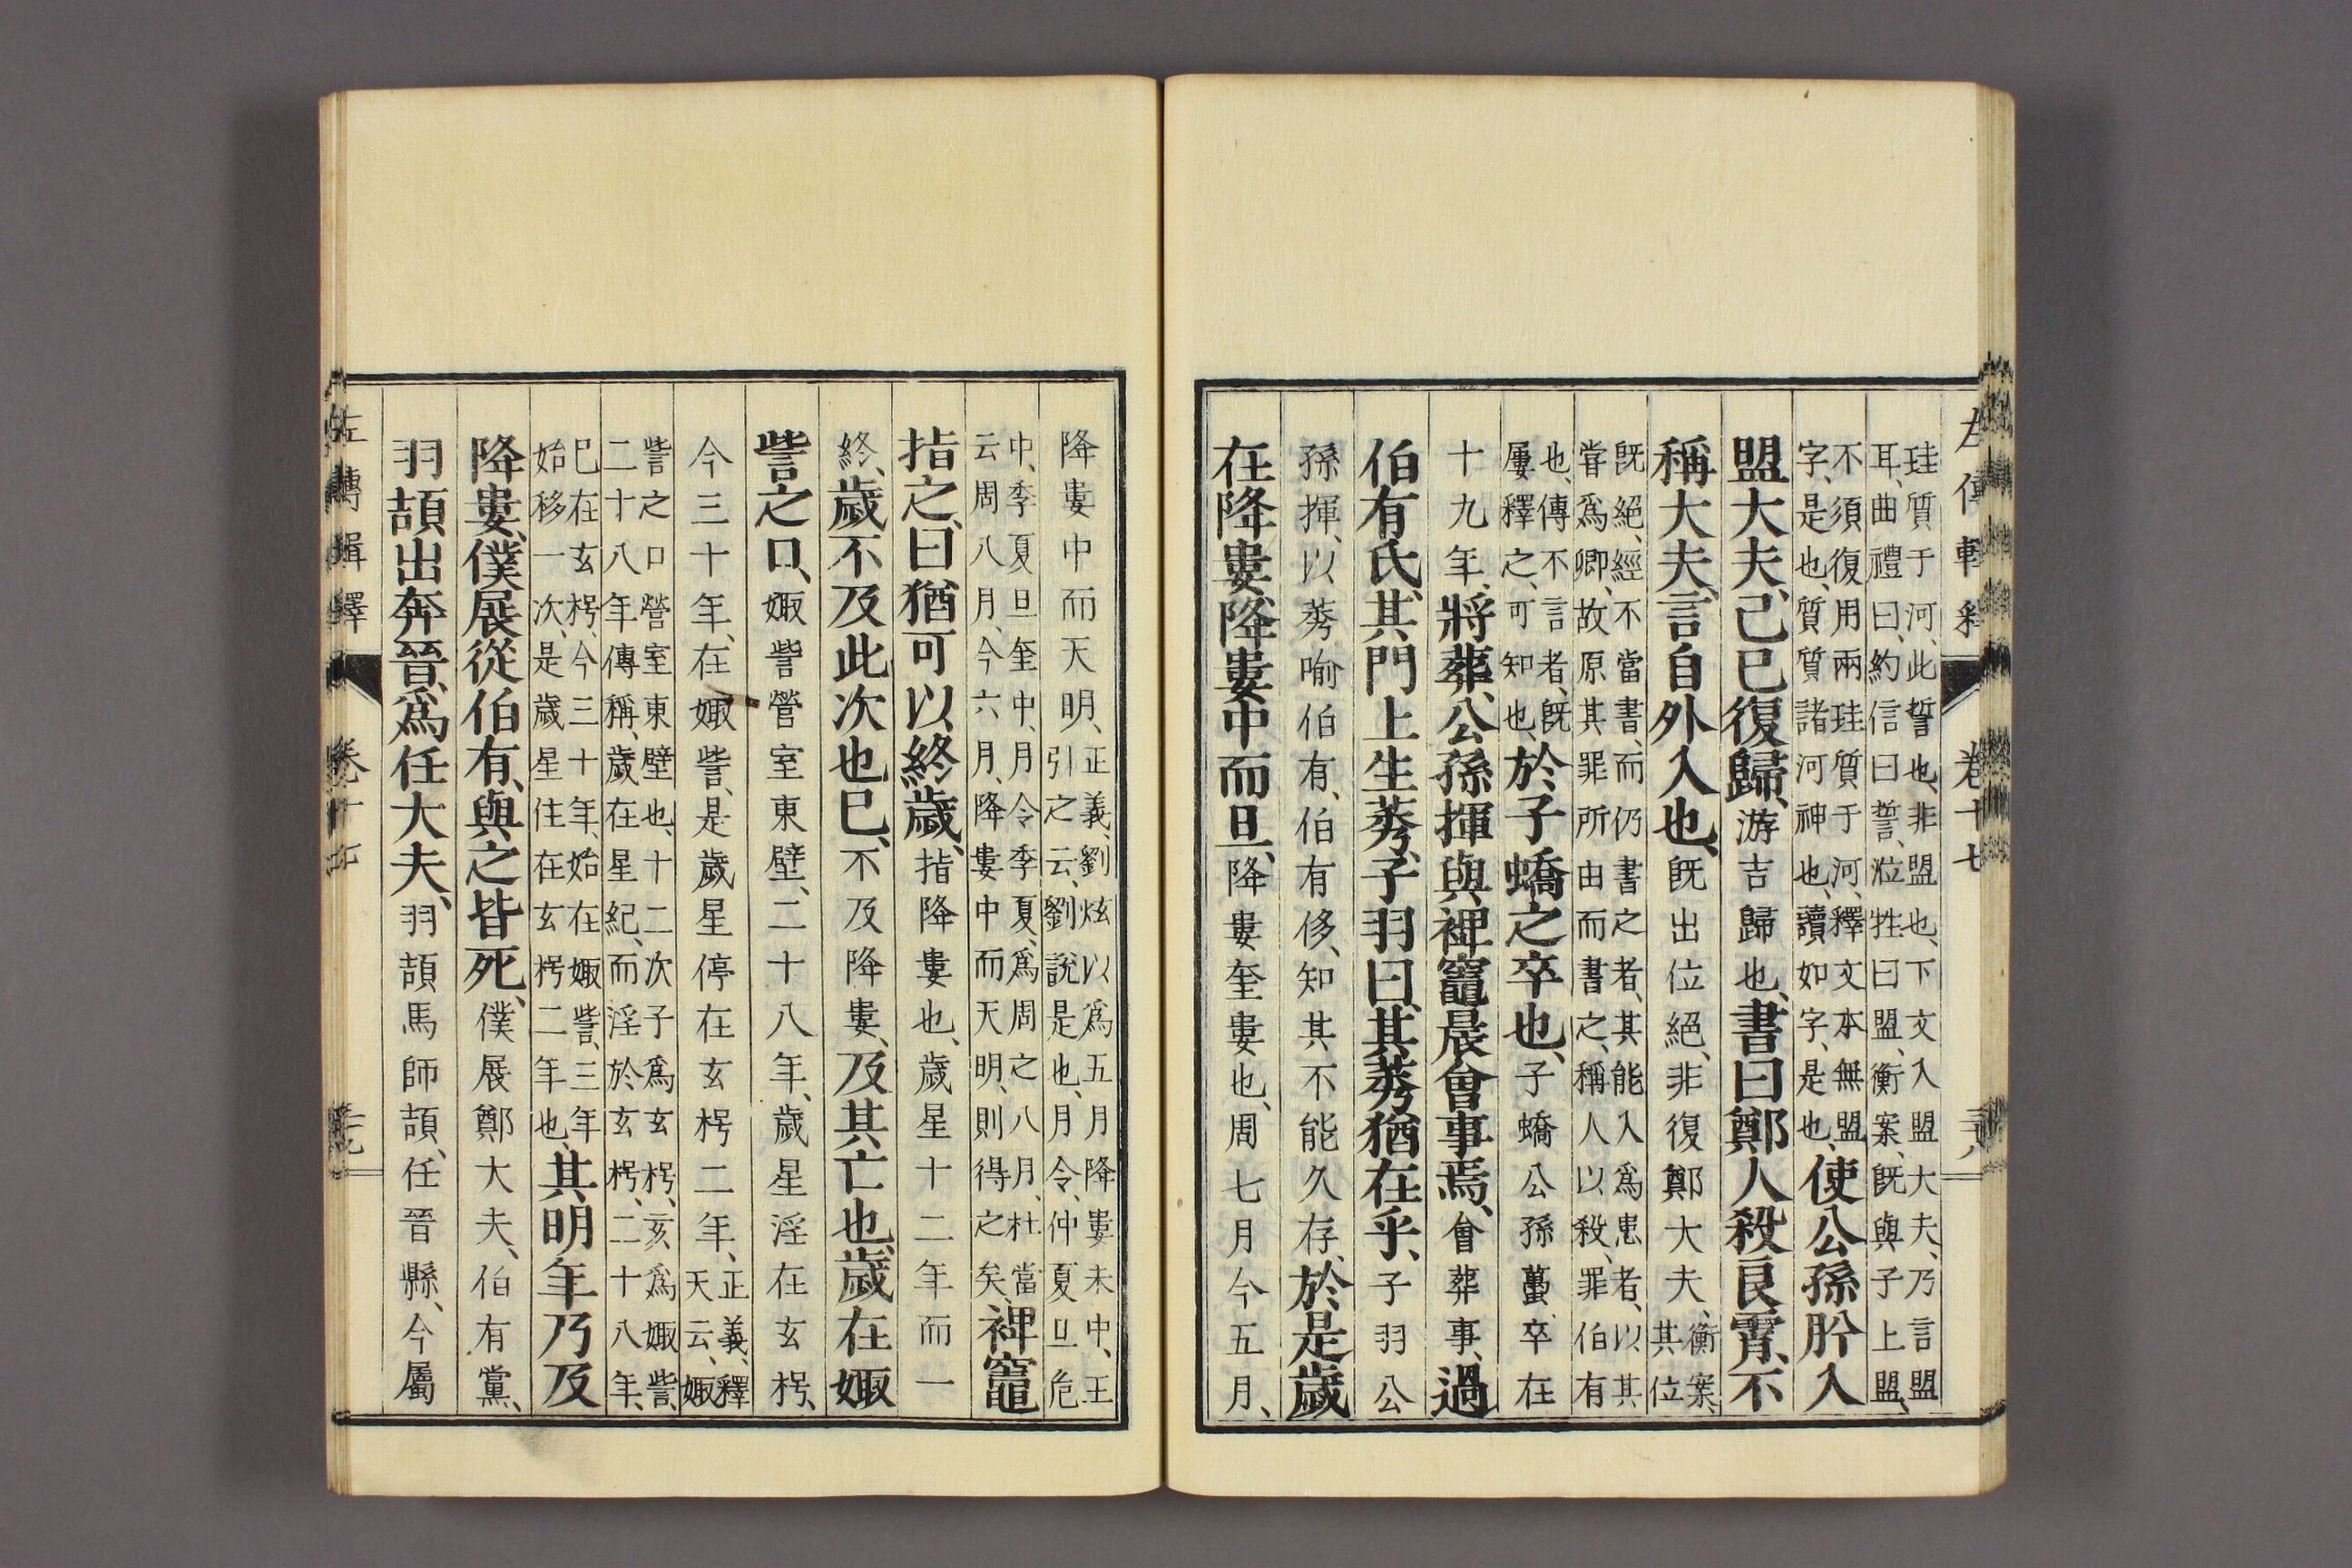 左傳輯釋 卷十七
珪質于河、此誓也、非盟也、下文入盟大夫、乃言盟
耳、曲禮曰、約信曰誓、涖牲曰盟、衡案、既與子上盟、
不須復用兩珪質于河、釋文本無盟
字、是也、質質諸河神也、讀如字、是也、使公孫肹入
盟大夫、己巳復歸、游吉歸也、書曰鄭人殺良霄、不
稱大夫、言自外入也、既出位絕、非復鄭大夫、衡案、其位
既絕、經不當書、而仍書之者、其能入爲患者、以其
嘗爲卿、故原其罪所由而書之、稱人以殺、罪伯有
也、傳不言者、既
屢釋之、可知也、於子蟜之卒也、子蟜公孫蠆、卒在
十九年、將葬、公孫揮與裨竈晨會事焉、會葬事、過
伯有氏、其門上生莠、子羽曰、其莠猶在乎、子羽公
孫揮、以莠喻伯有、伯有侈、知其不能久存、於是歲
在降婁、降婁中而旦、降婁奎婁也、周七月今五月、
降婁中而天明、正義、劉炫以爲五月降婁未中、王
引之云、劉說是也、月令、仲夏旦危
中、季夏旦奎中、月令季夏、爲周之八月、杜當
云周八月、今六月、降婁中而天明、則得之矣、裨竈
指之、曰猶可以終歲、指降婁也、歲星十二年而一
終、歲不及此次也已、不及降婁、及其亡也、歲在娵
訾之口、娵訾營室東壁、二十八年、歲星淫在玄枵、
今三十年、在娵訾、是歲星停在玄枵二年、正義、釋
天云、娵
訾之口營室東壁也、十二次子爲玄枵、亥爲娵訾、
二十八年傳稱、歲在星紀、而淫於玄枵、二十八年、
巳在玄枵、今三十年、始在娵訾、三年
始移一次、是歲星住在玄枵二年也、其明年乃及
降婁、僕展從伯有、與之皆死、僕展鄭大夫、伯有黨、
羽頡出奔晉、爲任大夫、羽頡馬師頡、任晉縣、今屬
左傳輯釋 卷十七